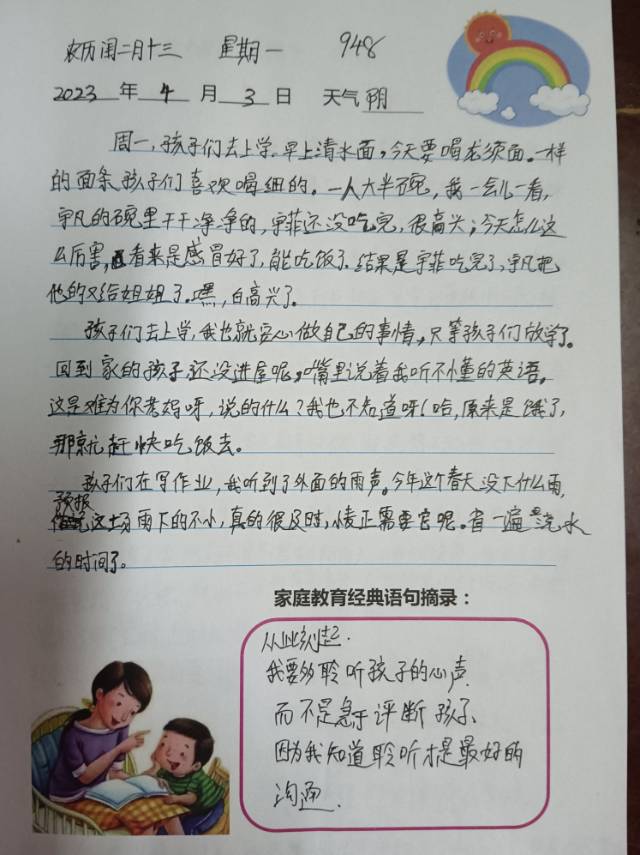 农历闰二月十三 星期一 948
2023年4月3日 天气阴
周一,孩子们去上学,早上清水面,今天要喝龙须面。一样
的面条孩子们喜欢喝细的。一人大半碗,我一会儿一看,
宇凡的碗里干干净净的,宇菲还没吃完,很高兴;今天怎么这
么厉害,看来是感冒好了,能吃饭了。结果是宇菲吃完了,宇凡把
他的又给姐姐了。嘿,白高兴了。
孩子们去上学,我也就安心做自己的事情,只等孩子们放学了。
回到家的孩子还没进屋呢,嘴里说着我听不懂的英语。
这是难为你老妈呀,说的什么?我也不知道呀!哈,原来是饿了,
那就赶快吃饭去。
孩子们在写作业,我听到了外面的雨声。今年这个春天没下什么雨,
预报这场雨下的不小,真的很及时,小麦正需要它呢。省一遍浇水
的时间了。
家庭教育经典语句摘录:
从此刻起.
我要多聆听孩子的心声
而不是急于评断孩子、
因为我知道聆听才是最好的
沟通.